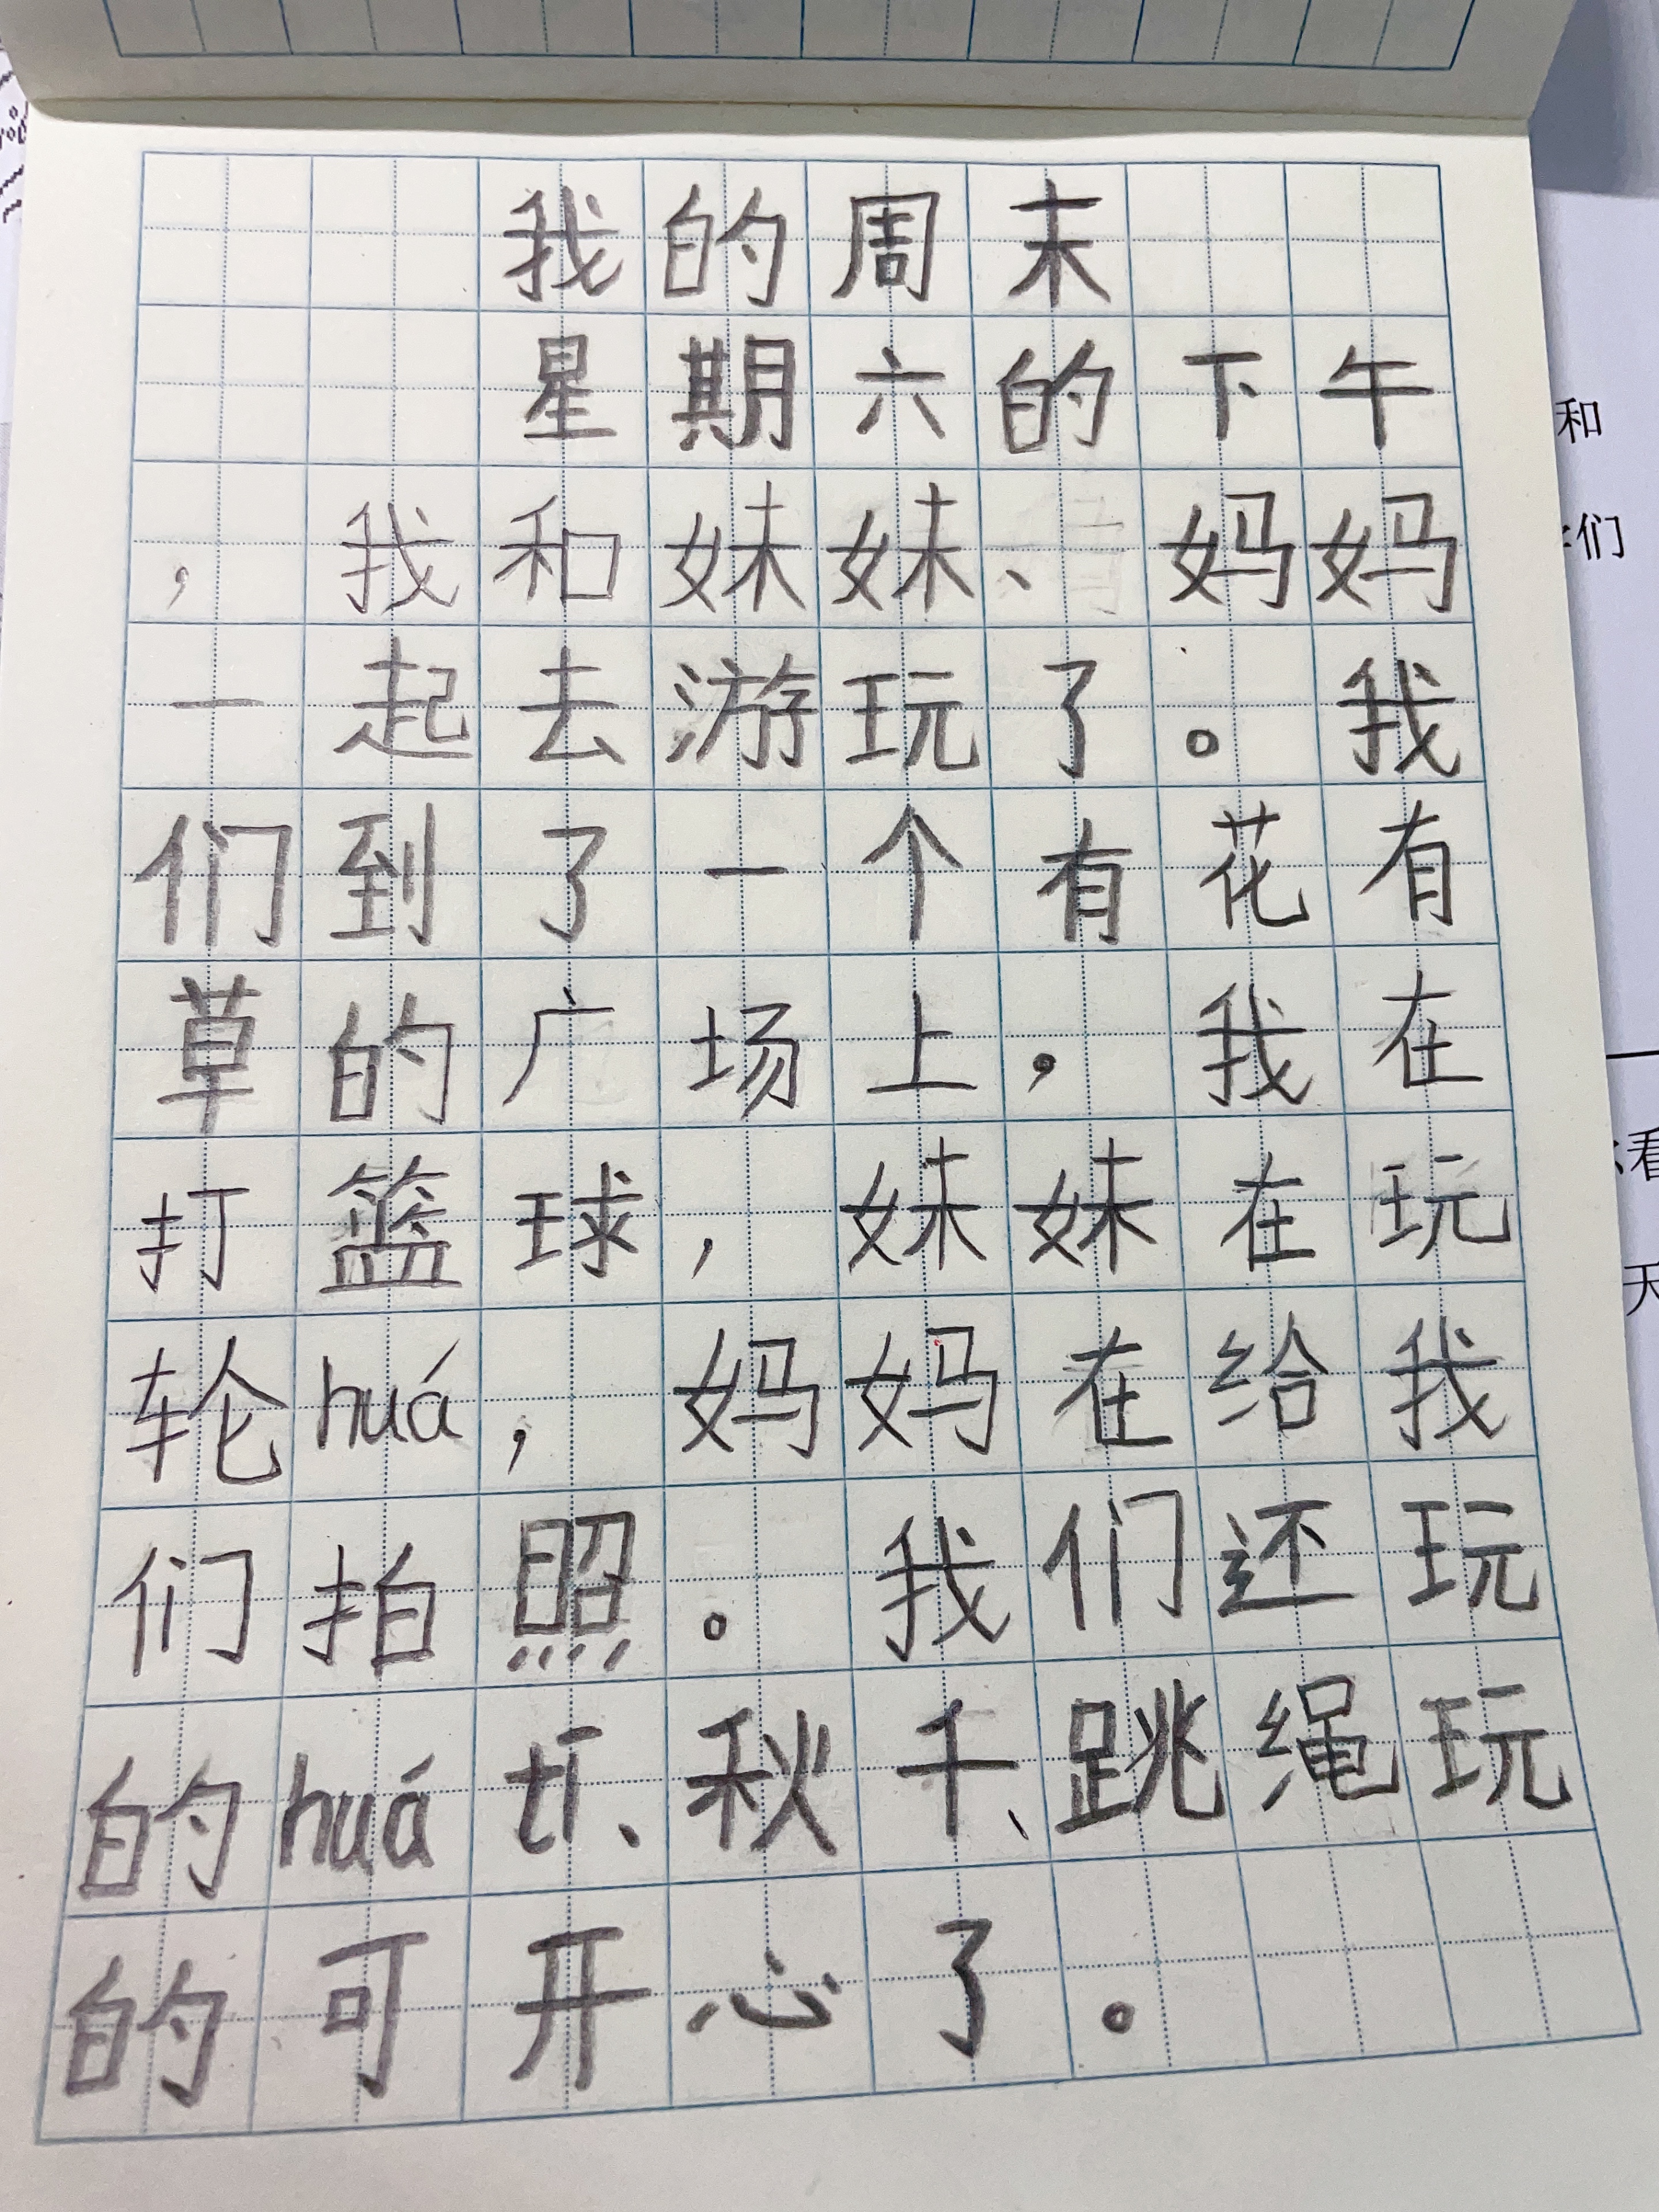 我的周末
星期六的下午
，我和妹妹、妈妈
一起去游玩了。我
们到了一个有花有
草的广场上，我在
打篮球，妹妹在玩
轮huá，妈妈在给我
们拍照。我们还玩
的huá tī、秋千、跳绳玩
的可开心了。
和
们
看
天